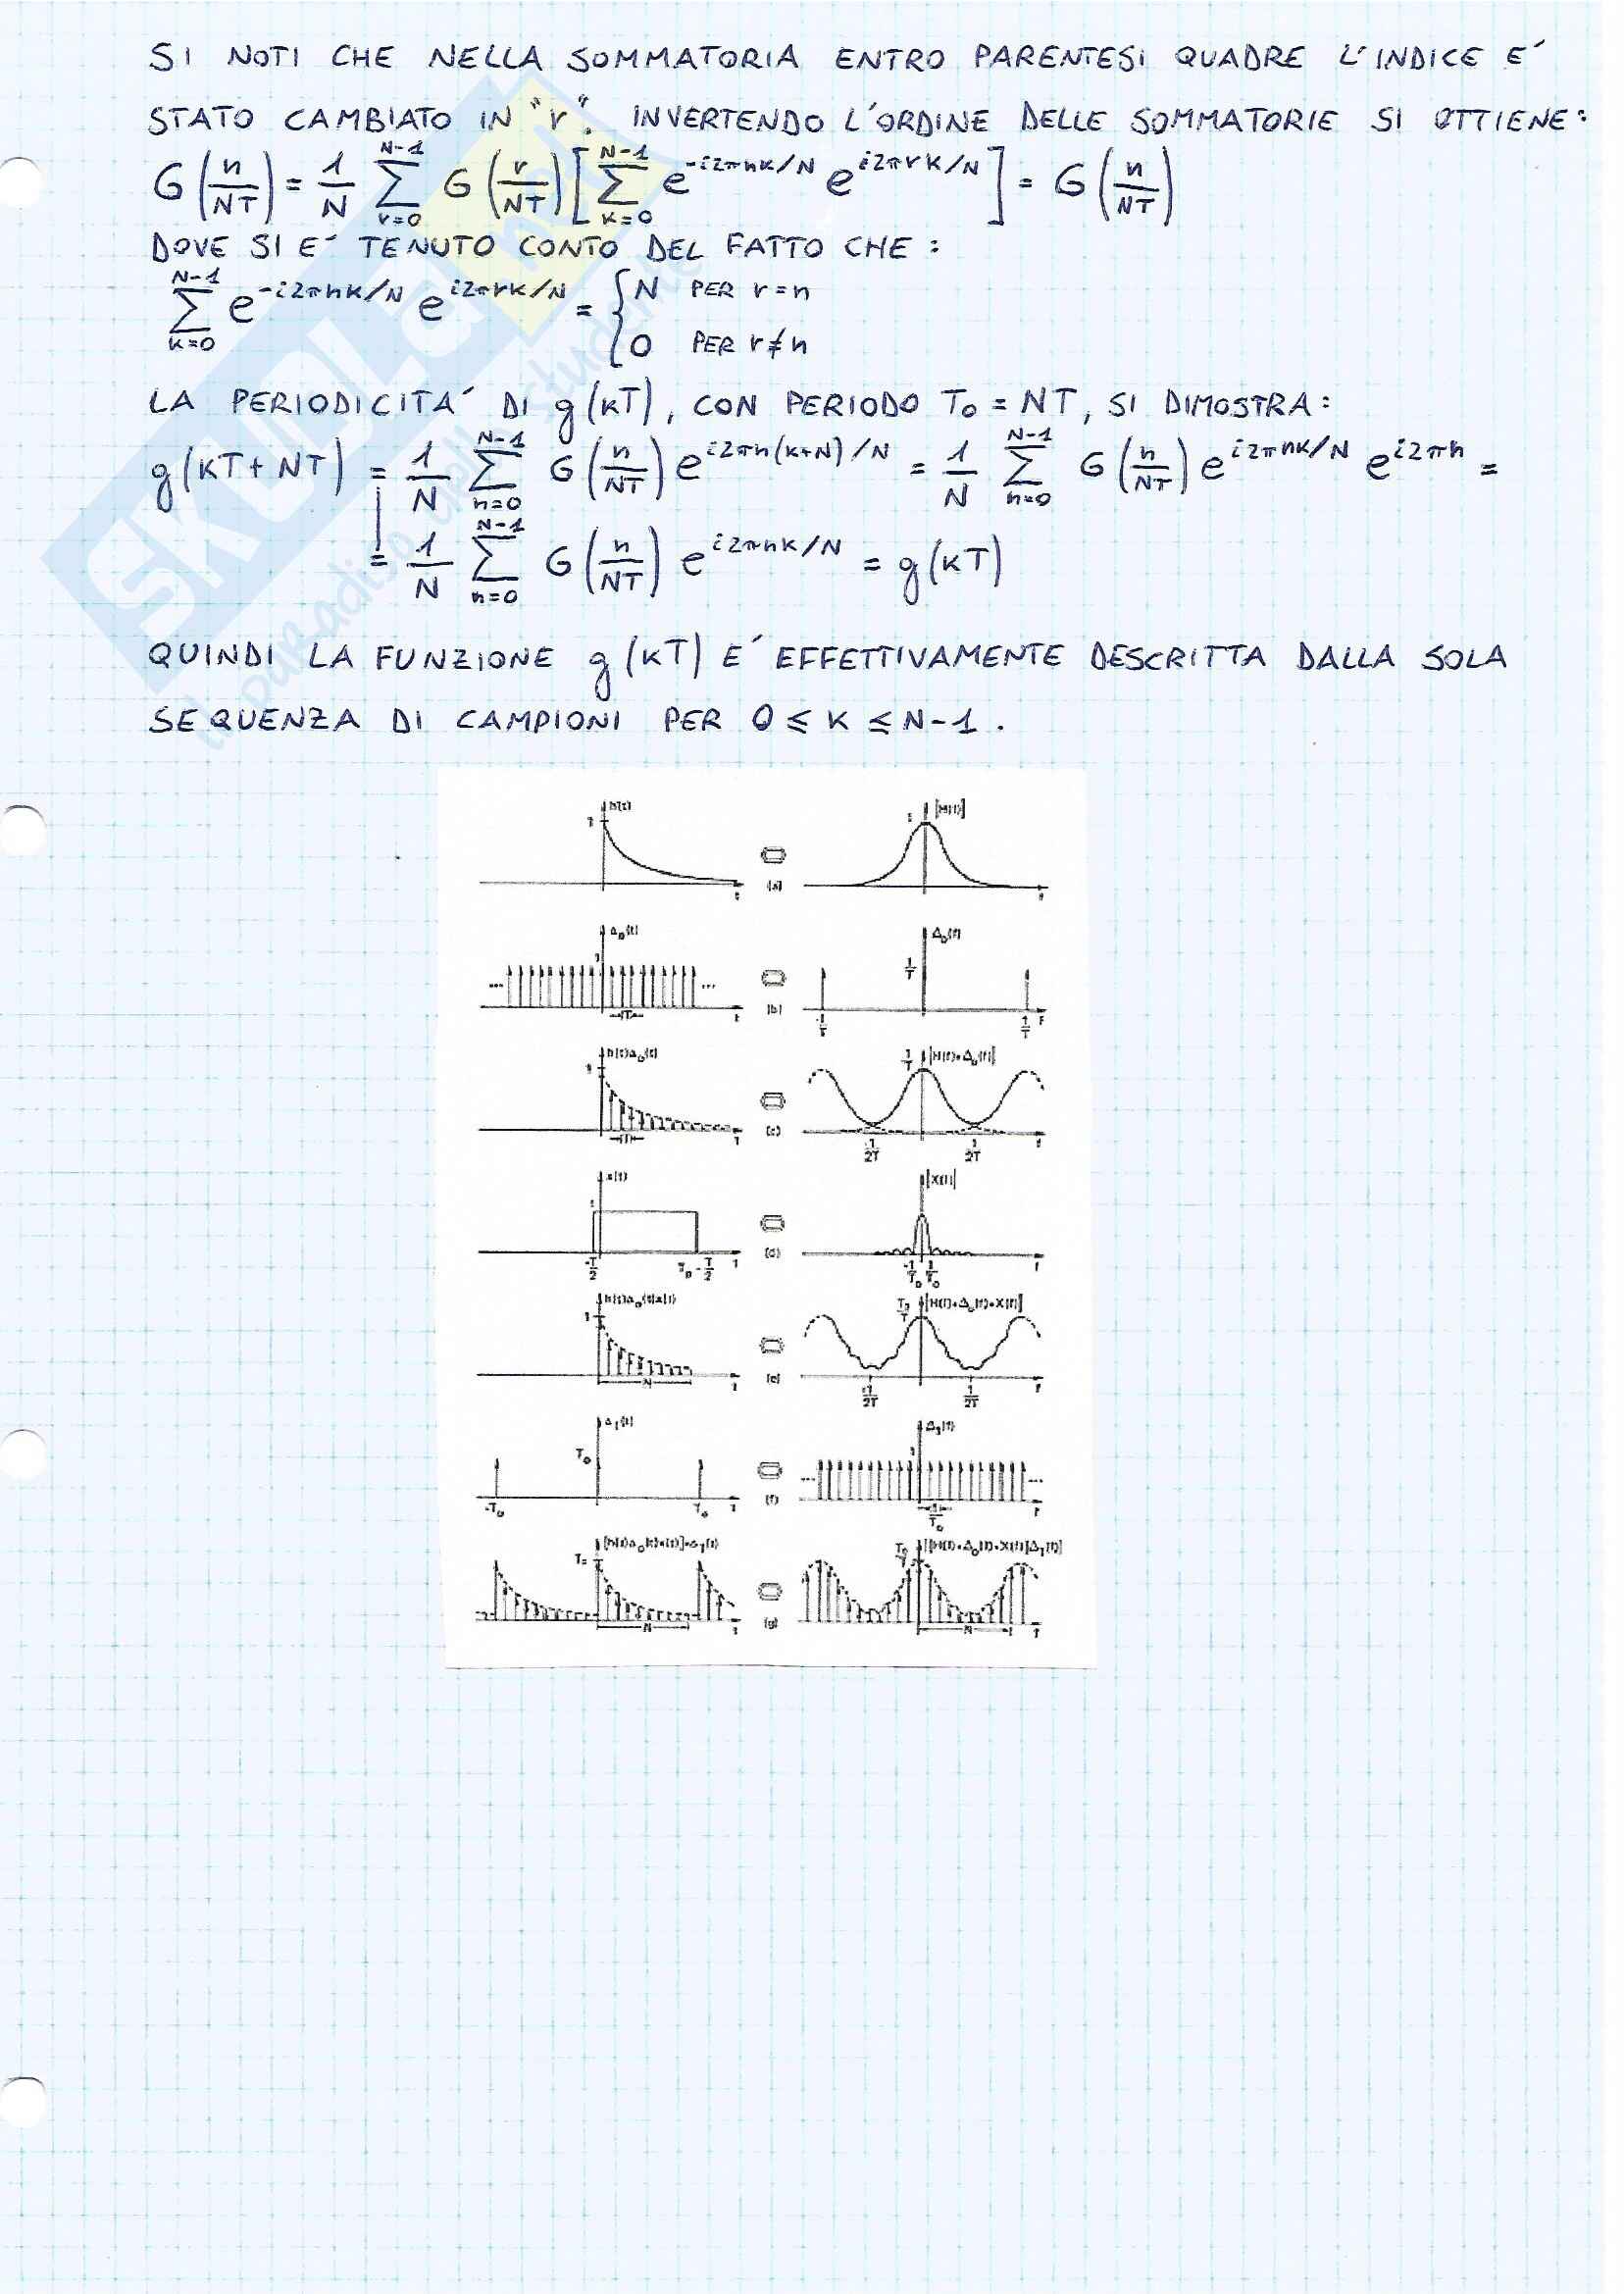 SI NOTI CHE NELLA SOMMATORIA ENTRO PARENTESI QUADRE L'INDICE E'
STATO CAMBIATO IN "r". INVERTENDO L'ORDINE DELLE SOMMATORIE SI OTTIENE:
G(n/NT) = 1/N ∑_{r=0}^{N-1} G(r/NT) [∑_{k=0}^{N-1} e^{-i2πnk/N} e^{i2πrk/N}] = G(n/NT)
DOVE SI E' TENUTO CONTO DEL FATTO CHE:
∑_{k=0}^{N-1} e^{-i2πnk/N} e^{i2πrk/N} = { N PER r=n
0 PER r≠n
LA PERIODICITA' DI g(kT), CON PERIODO T₀ = NT, SI DIMOSTRA:
g(kT+NT) = 1/N ∑_{n=0}^{N-1} G(n/NT) e^{i2πn(k+N)/N} = 1/N ∑_{n=0}^{N-1} G(n/NT) e^{i2πnk/N} e^{i2πn} =
= 1/N ∑_{n=0}^{N-1} G(n/NT) e^{i2πnk/N} = g(kT)
QUINDI LA FUNZIONE g(kT) E' EFFETTIVAMENTE DESCRITTA DALLA SOLA
SEQUENZA DI CAMPIONI PER 0 ≤ K ≤ N-1.
h(t) |H(f)|
1 1
(a)
t f
Δ₀(t) Δ₀(f)
1 1/T
(b)
T t -1/T 1/T f
h(t)Δ₀(t) |H(f)*Δ₀(f)|
1 1/T
(c)
T -1/2T 1/2T f
x(t) |X(f)|
1
(d)
-T/2 T₀-T/2 -1/T₀ 1/T₀ f
h(t)Δ₀(t)x(t) |H(f)*Δ₀(f)*X(f)|
1
(e)
N -1/2T 1/2T f
Δ₁(t) Δ₁(f)
T₀ 1
(f)
-T₀ T₀ 1/T₀ f
[h(t)Δ₀(t)x(t)]*Δ₁(t) |[H(f)*Δ₀(f)*X(f)]Δ₁(f)|
(g)
N N f
SKUOLA
il paradiso dello studente